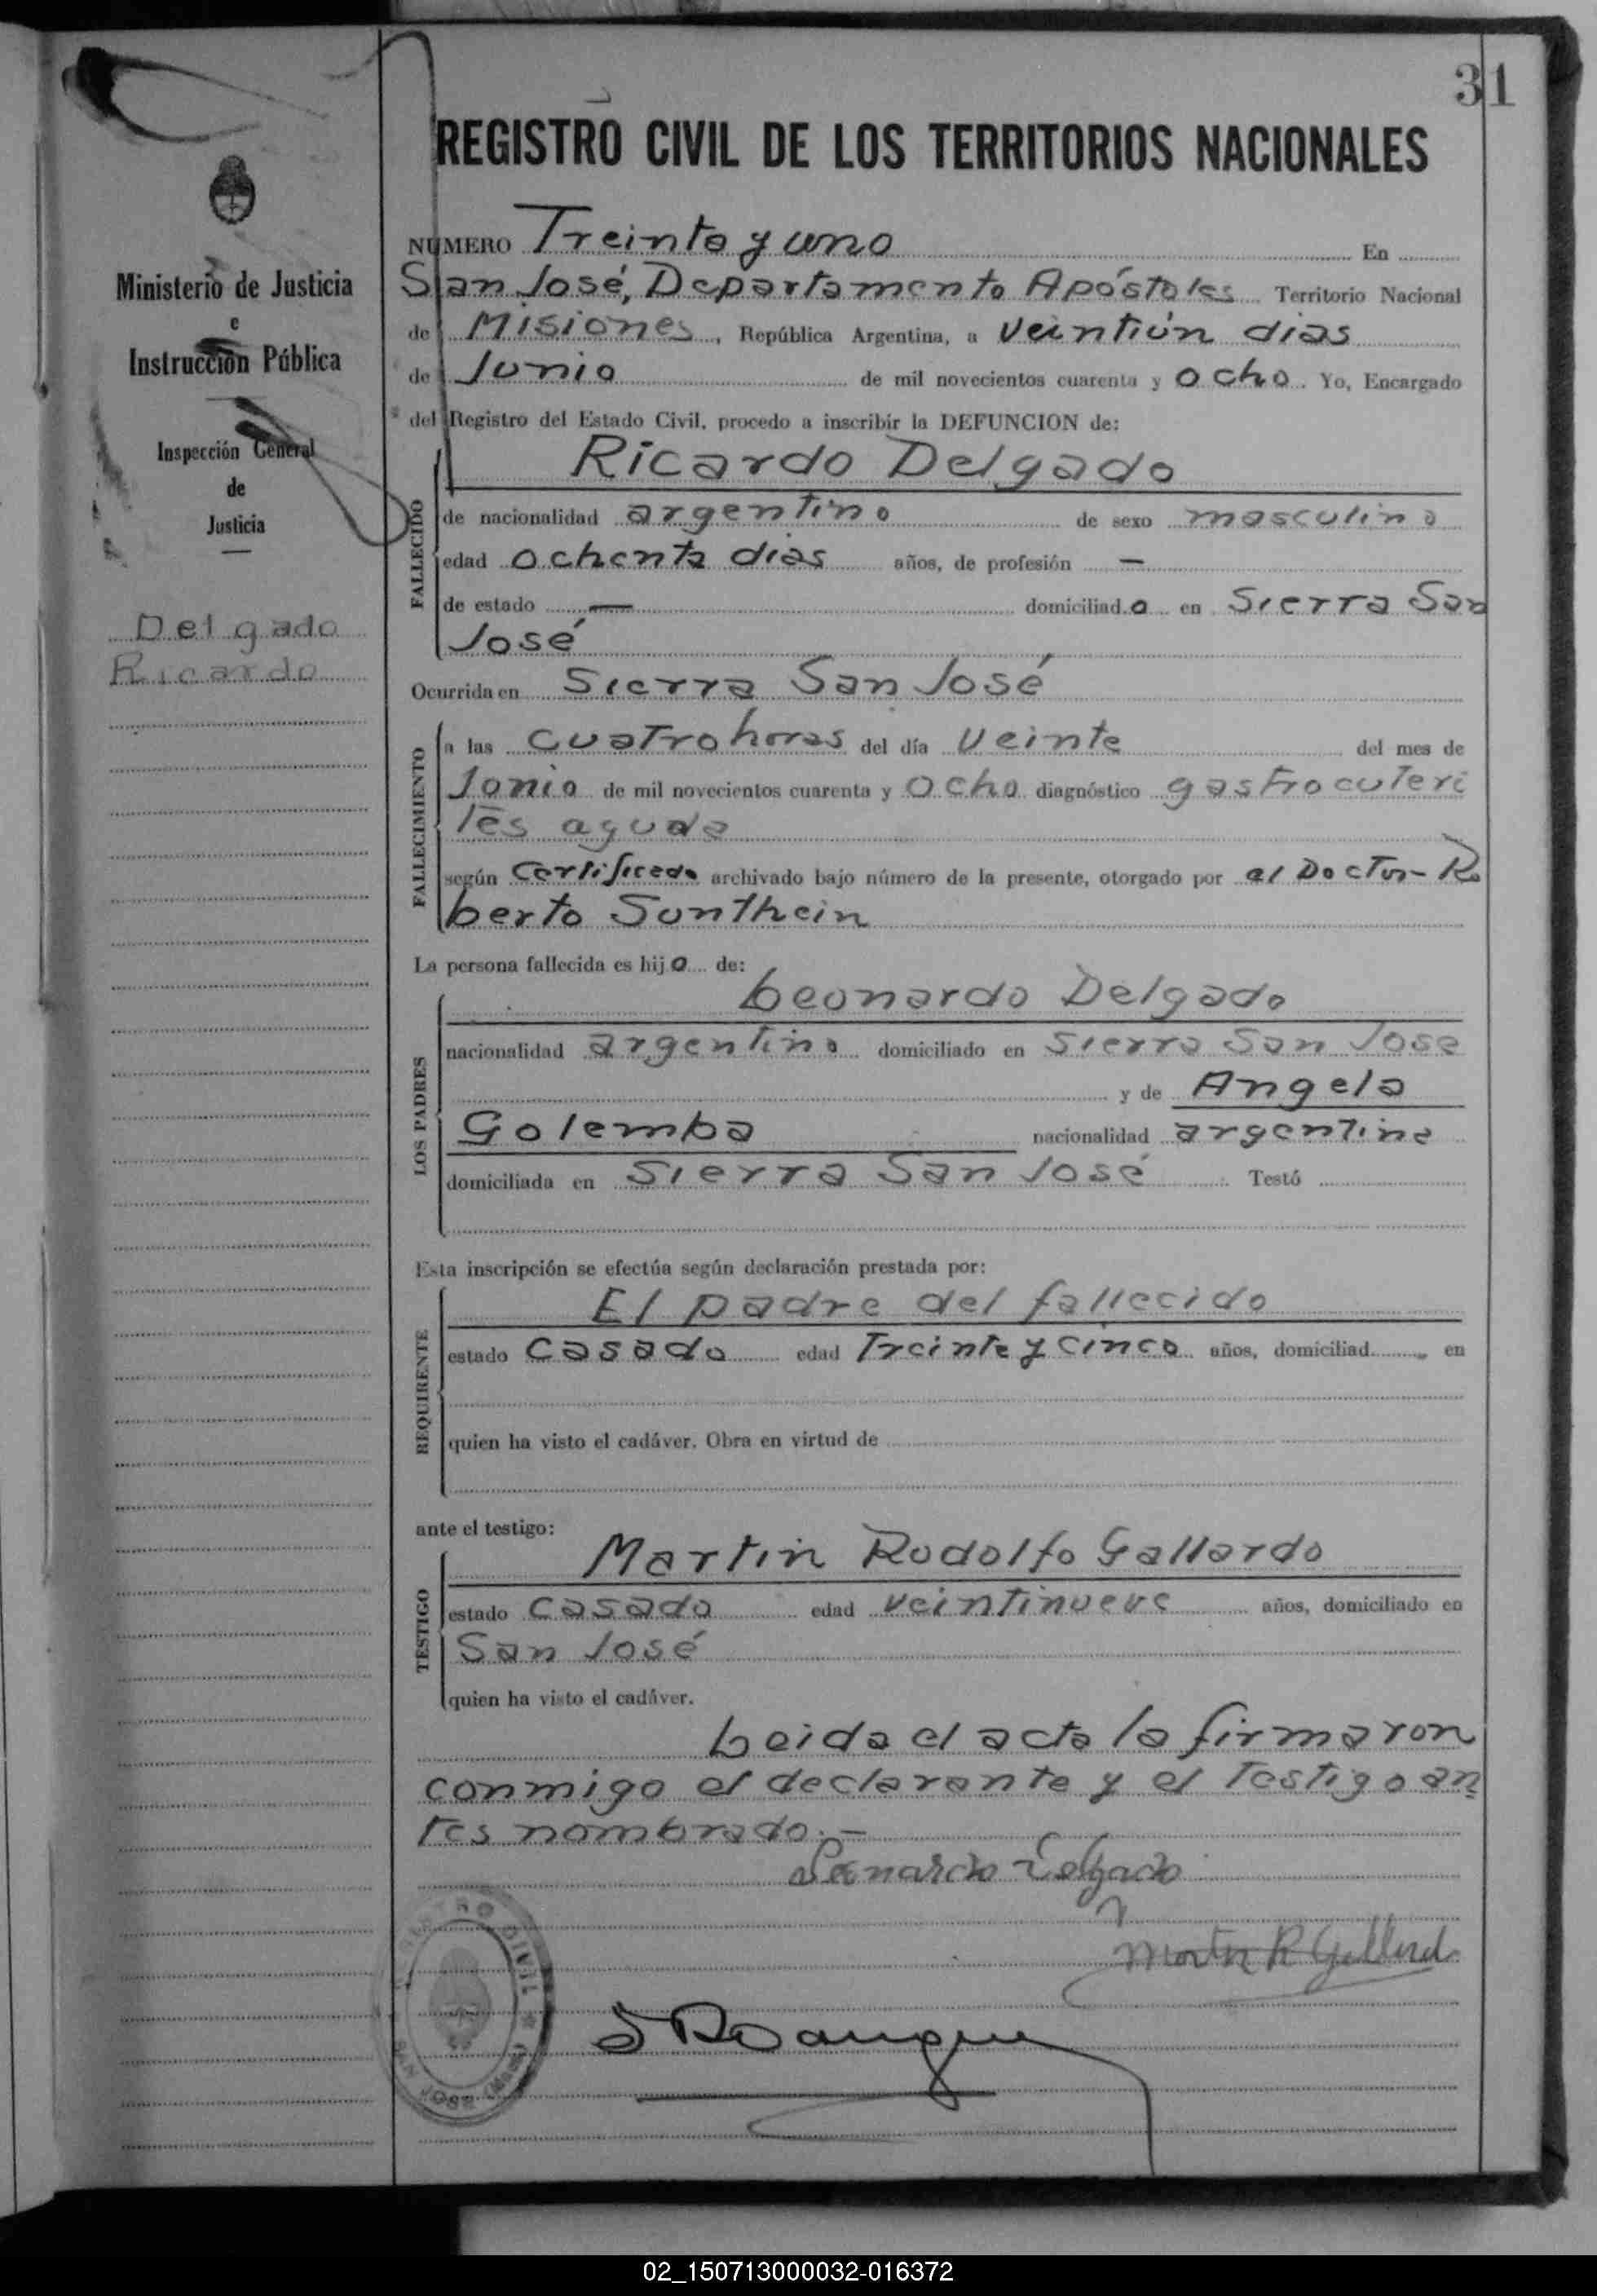 31
REGISTRO CIVIL DE LOS TERRITORIOS NACIONALES
Ministerio de Justicia
e
Instrucción Pública
Inspección General
de
Justicia
Delgado
Ricardo
NUMERO Treinta y uno En
San José, Departamento Apóstoles Territorio Nacional
de Misiones, República Argentina, a veintiún dias
de Junio de mil novecientos cuarenta y ocho. Yo, Encargado
del Registro del Estado Civil, procedo a inscribir la DEFUNCION de:
FALLECIDO
Ricardo Delgado
de nacionalidad argentino de sexo masculino
edad ochenta dias años, de profesión —
de estado — domiciliado en Sierra San
José
Ocurrida en Sierra San José
FALLECIMIENTO
a las cuatro horas del día veinte del mes de
Junio de mil novecientos cuarenta y ocho diagnóstico gastroenteri
tes aguda
según certificado archivado bajo número de la presente, otorgado por el Doctor Ro
berto Sunthein
La persona fallecida es hijo de:
LOS PADRES
Leonardo Delgado
nacionalidad argentino domiciliado en Sierra San Jose
y de Angela
Golemba nacionalidad argentina
domiciliada en Sierra San José Testó
Esta inscripción se efectúa según declaración prestada por:
REQUIRENTE
El padre del fallecido
estado casado edad Treinta y cinco años, domiciliad en
quien ha visto el cadáver. Obra en virtud de
ante el testigo:
TESTIGO
Martin Rodolfo Gallardo
estado casado edad veintinueve años, domiciliado en
San José
quien ha visto el cadáver.
Leida el acta la firmaron
conmigo el declarante y el testigo an
tes nombrado.—
Leonardo Delgado
Martin R Gallardo
REGISTRO CIVIL
SAN JOSE (Mnes)
02_150713000032-016372